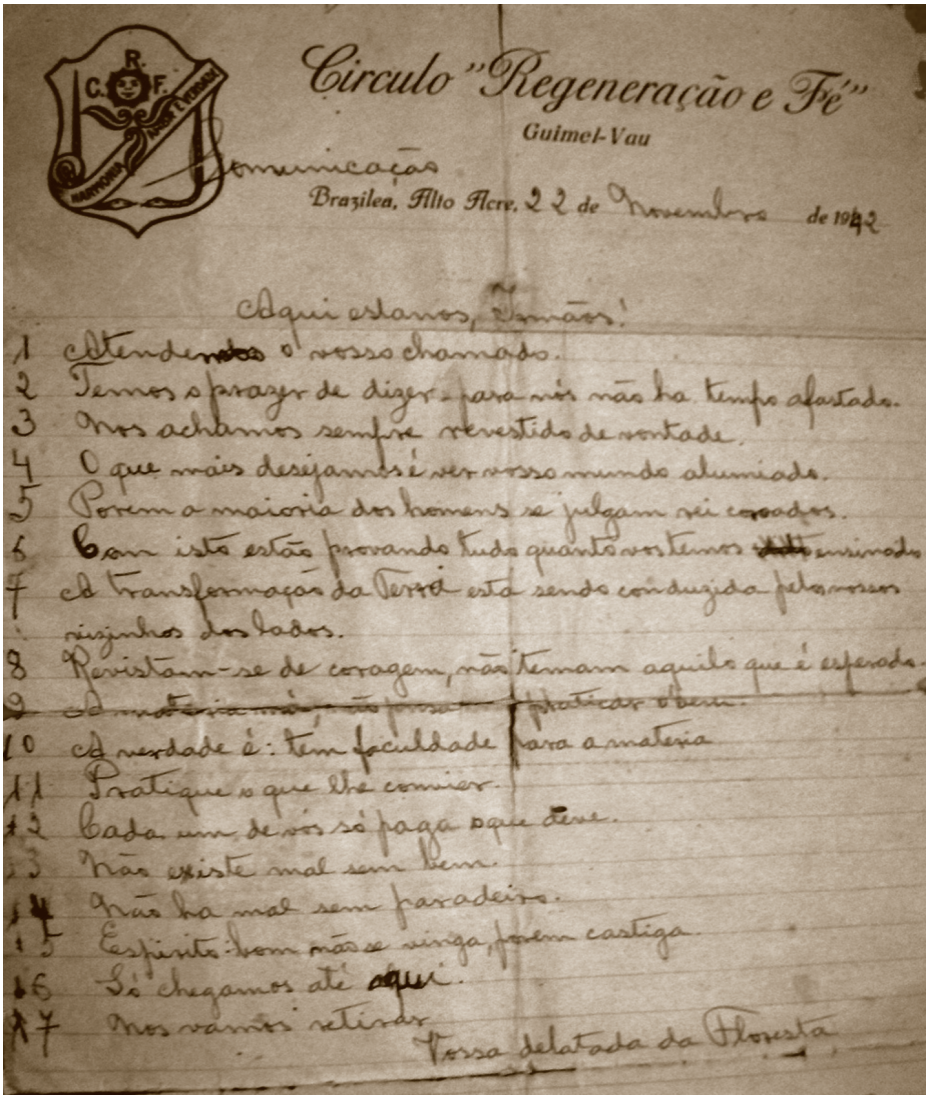 C. R. F.
HARMONIA, AMOR E VERDADE
Circulo "Regeneração e Fé"
Guimel-Vau
Comunicação
Brazilea, Alto Acre, 22 de Novembro de 1942
Aqui estanos, Irmãos!
1 Atendendo o vosso chamado.
2 Temos o prazer de dizer-para nós não ha tempo afastado.
3 Nos achamos sempre revestido de vontade.
4 O que mais desejamos é ver vosso mundo alumiado.
5 Porem a maioria dos homens se julgam rei coroados.
6 Com isto estão provando tudo quanto vos temos ensinado
7 A transformação da Terra está sendo conduzida pelos vossos
vizinhos dos lados.
8 Revistam-se de coragem, não temam aquilo que é esperado.
9 A materia má, não praticar o bem.
10 A verdade é: tem faculdade para a materia
11 Pratique o que lhe convier.
12 Cada um de vós só paga o que deve.
13 Não existe mal sem bem.
14 Não ha mal sem paradeiro.
15 Espirito-bom não se vinga, porem castiga.
16 Só chegamos até aqui.
17 Nos vamos retirar
Vossa delatada da Floresta